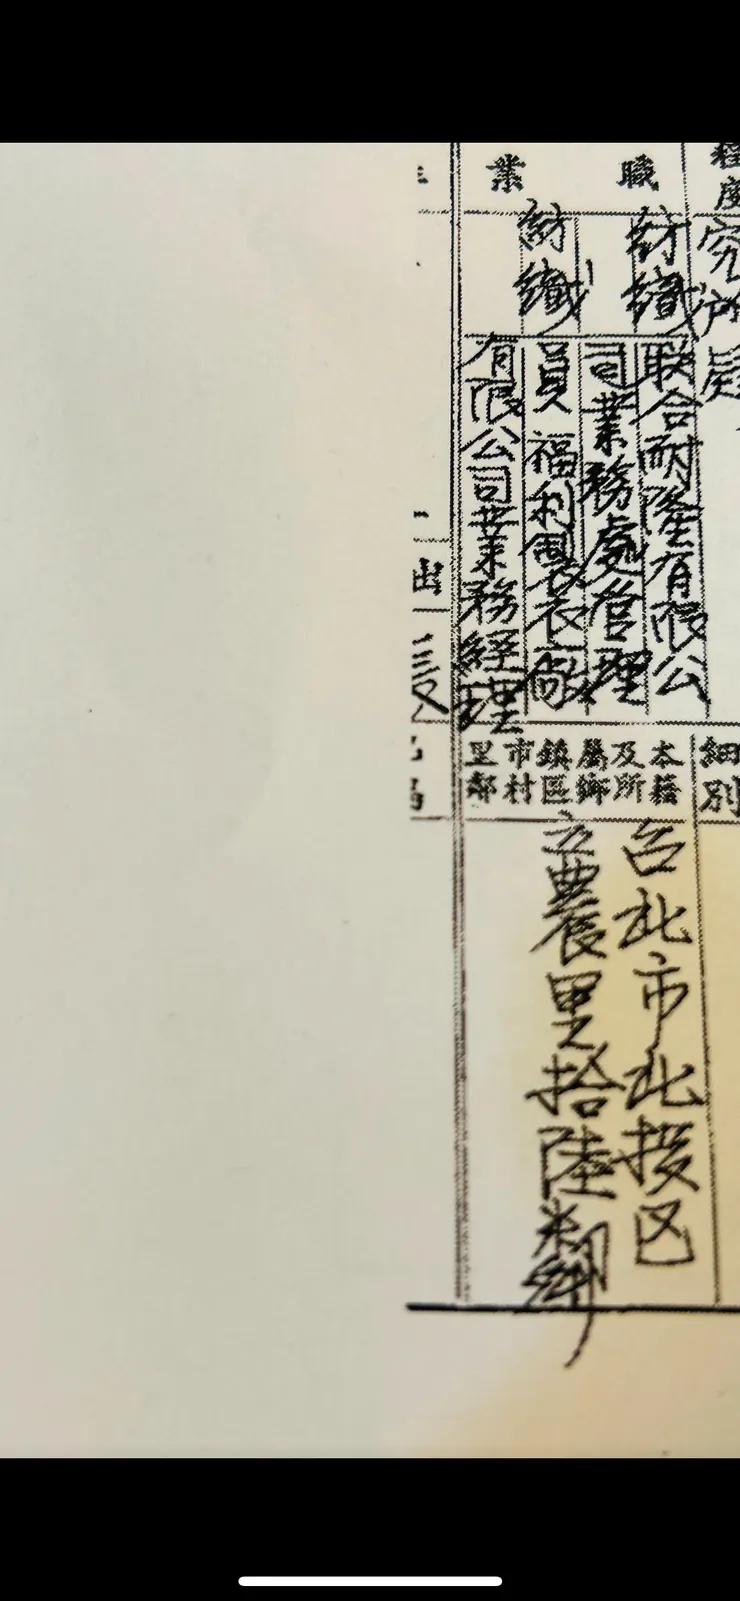 程度
究所
職業
紡織
聯合耐隆有限公
司業務處管理
紡織
員 福利團衣廠
有限公司業務經理
細別
本籍及所屬鄉鎮區市村里鄰
台北市北投区
立農里拾陸鄰